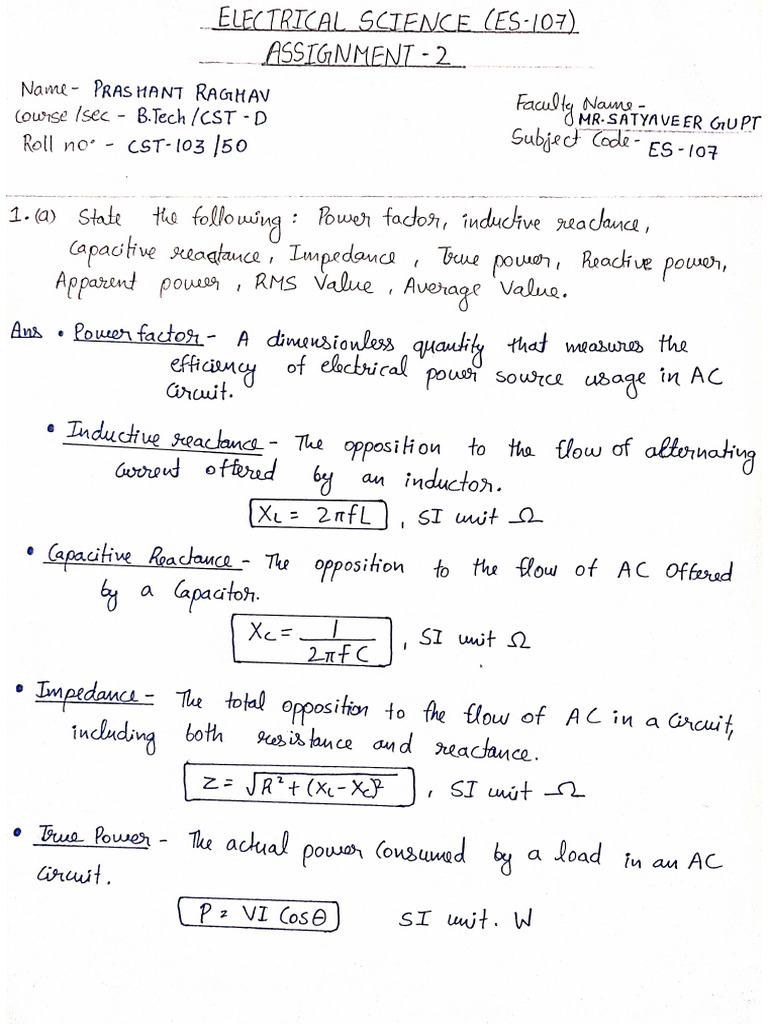 ELECTRICAL SCIENCE (ES-107)
ASSIGNMENT - 2
Name - PRASHANT RAGHAV
Course/sec - B.Tech/CST-D
Roll no. - CST-103/50
Faculty Name -
MR. SATYAVEER GUPT
Subject Code - ES-107
1. (a) State the following : Power factor, inductive reactance,
Capacitive reactance, Impedance, True power, Reactive power,
Apparent power, RMS Value, Average Value.
Ans • Power factor - A dimensionless quantity that measures the
efficiency of electrical power source usage in AC
Circuit.
• Inductive reactance - The opposition to the flow of alternating
current offered by an inductor.
XL = 2πfL , SI unit Ω
• Capacitive Reactance - The opposition to the flow of AC Offered
by a Capacitor.
XC = 1/2πfC , SI unit Ω
• Impedance - The total opposition to the flow of AC in a Circuit,
including both resistance and reactance.
Z = √R² + (XL - XC)² , SI unit Ω
• True Power - The actual power Consumed by a load in an AC
Circuit.
P = VI Cosθ SI unit. W